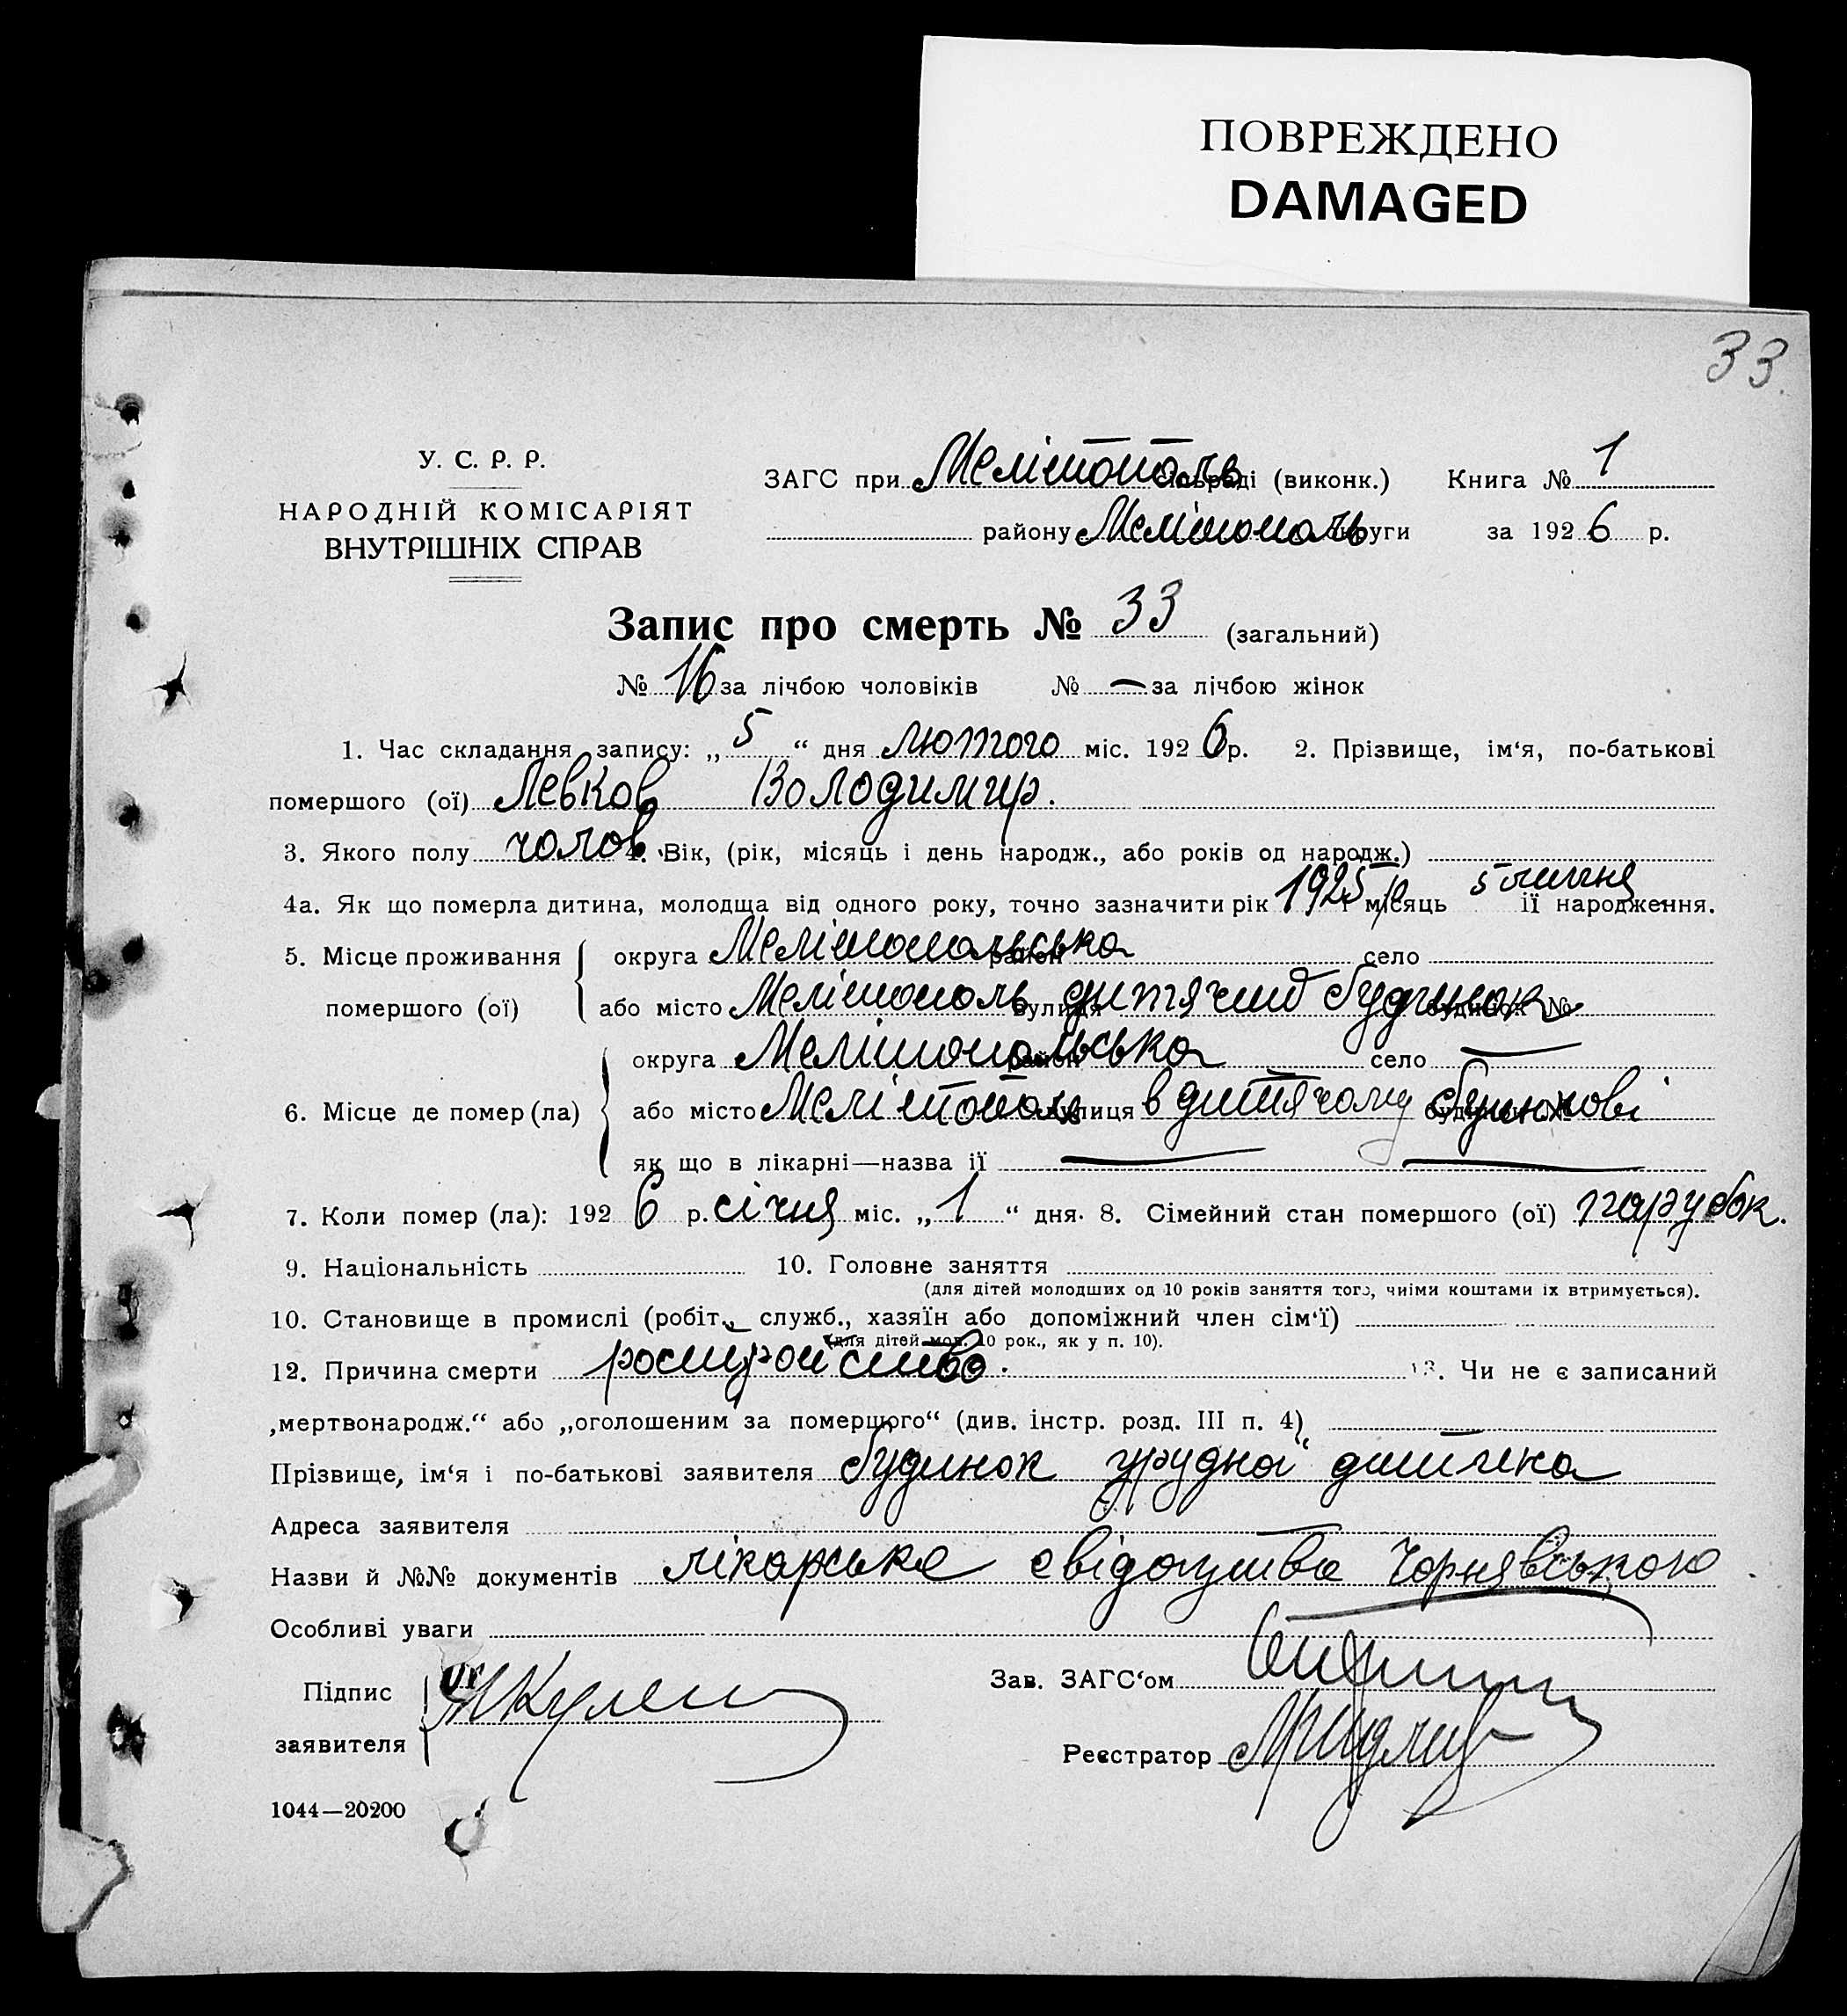 ПОВРЕЖДЕНО
DAMAGED
33.
У. С. Р. Р.
НАРОДНІЙ КОМІСАРІЯТ
ВНУТРІШНІХ СПРАВ
ЗАГС при Мелітополь сільраді (виконк.) Книга № 1
району Мелітополь округи за 1926 р.
Запис про смерть № 33 (загальний)
№ 16 за лічбою чоловіків № — за лічбою жінок
1. Час складання запису: „5“ дня лютого міс. 1926 р. 2. Прізвище, ім‘я, по-батькові
помершого (ої) Левков Володимир.
3. Якого полу чолов. 4. Вік, (рік, місяць і день народж., або років од народж.)
4а. Як що померла дитина, молодща від одного року, точно зазначити рік 1925 р і місяць 5 липня її народження.
5. Місце проживання помершого (ої) округа Мелітопольська район село
або місто Мелітополь вулиця дитячий будинок будинок №
6. Місце де помер (ла) округа Мелітопольська район село —
або місто Мелітополь вулиця в дитячому будинкові будинок №
як що в лікарні—назва її
7. Коли помер (ла): 1926 р. січня міс. „1“ дня. 8. Сімейний стан помершого (ої) парубок.
9. Національність 10. Головне заняття
(для дітей молодших од 10 років заняття того, чиїми коштами їх втримується).
10. Становище в промислі (робіт., служб., хазяїн або допоміжний член сім‘ї)
(для дітей мол. 10 рок., як у п. 10).
12. Причина смерти ростройство. 13. Чи не є записаний
„мертвонародж.“ або „оголошеним за помершого“ (див. інстр. розд. III п. 4)
Прізвище, ім‘я і по-батькові заявителя будинок грудна дитина
Адреса заявителя
Назви й №№ документів лікарське свідоцтво Чорнявською
Особливі уваги
Підпис
заявителя
Зав. ЗАГС‘ом
Реєстратор
1044—20200